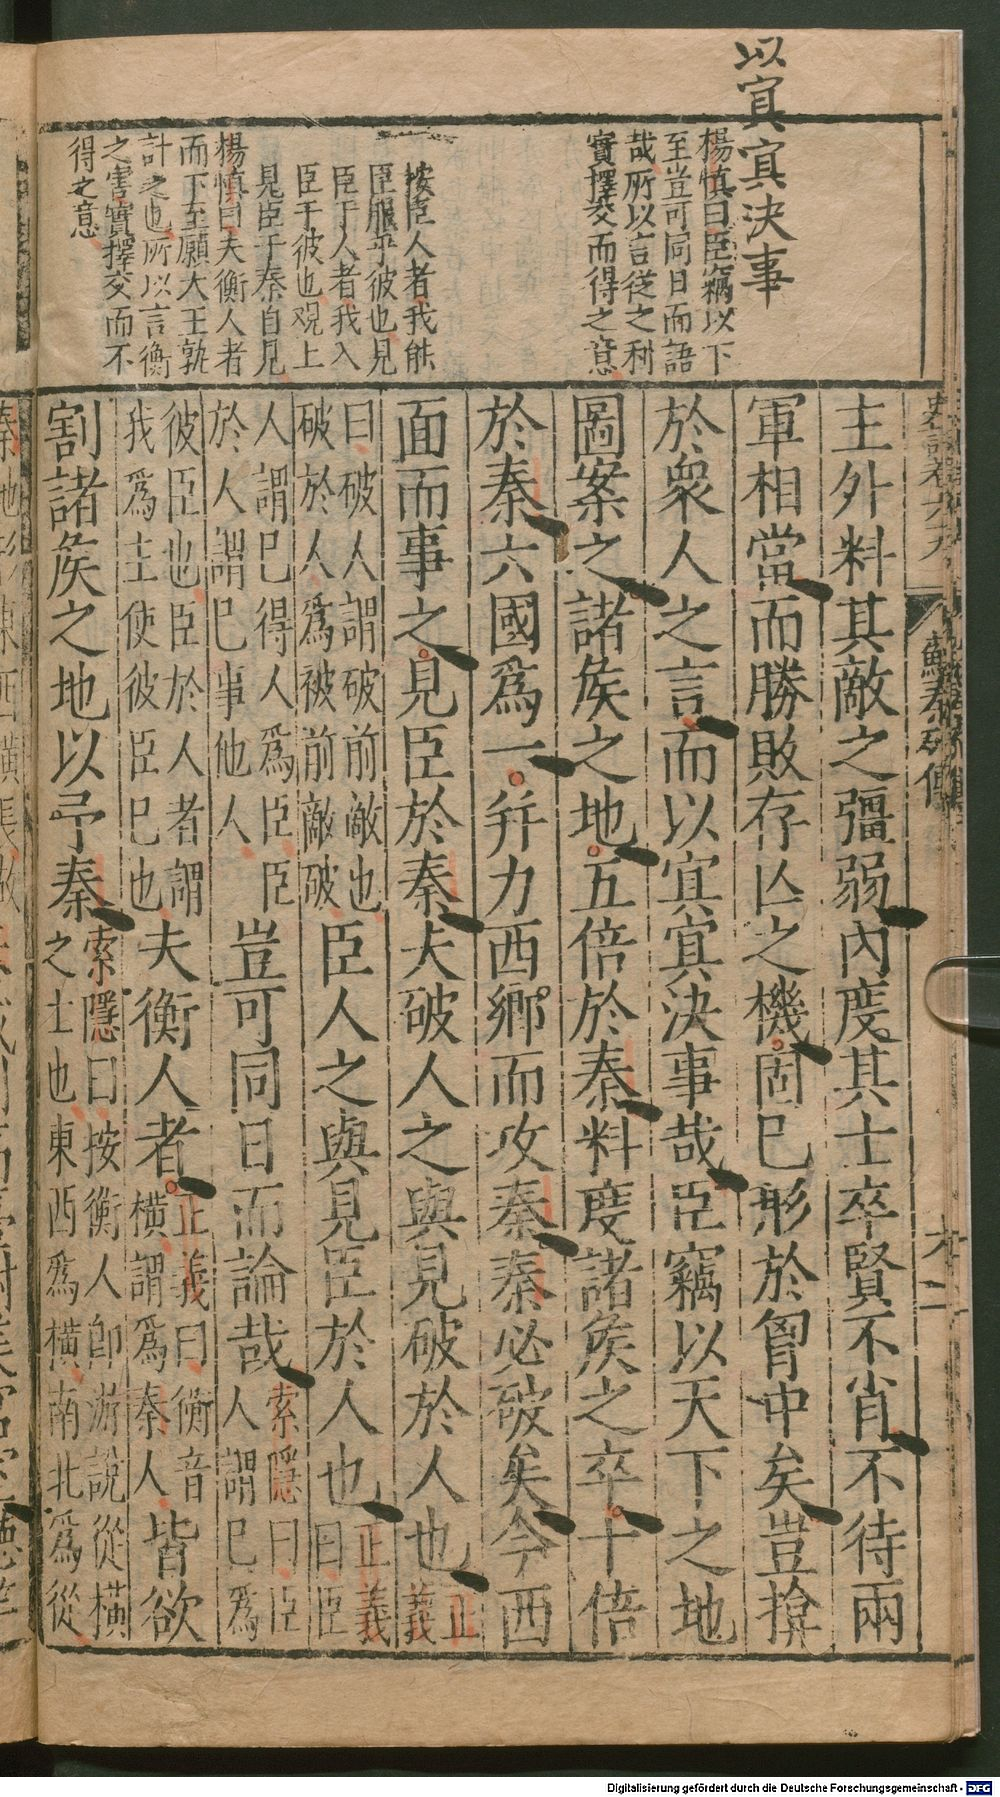 以㝠㝠決事
楊慎曰臣竊以下
至豈可同日而語
哉所以言從之利
實擇交而得之意
按臣人者我能
臣服乎彼也見
臣于人者我入
臣于彼也观上
見臣于秦自見
楊慎曰夫衡人者
而下至願大王孰
計之也所以言衡
之害實擇交而不
得之意
史記卷六十九
蘇秦列傳
十二
主外料其敵之彊弱內度其士卒賢不肖不待兩
軍相當而勝敗存亾之機固已形於胷中矣豈揜
於衆人之言而以㝠㝠決事哉臣竊以天下之地
圖案之諸矦之地五倍於秦料度諸矦之卒十倍
於秦六國爲一并力西鄉而攻秦秦必破矣今西
面而事之見臣於秦夫破人之與見破於人也正義
曰破人謂破前敵也
破於人爲被前敵破
臣人之與見臣於人也正義曰臣
人謂己得人爲臣臣
於人謂己事他人
豈可同日而論哉索隱曰臣人謂己爲
彼臣也臣於人者謂
我爲主使彼臣己也
夫衡人者正義曰衡音橫謂爲秦人皆欲
割諸矦之地以予秦索隱曰按衡人卽游說從橫
之士也東西爲橫南北爲從
Digitalisierung gefördert durch die Deutsche Forschungsgemeinschaft - DFG